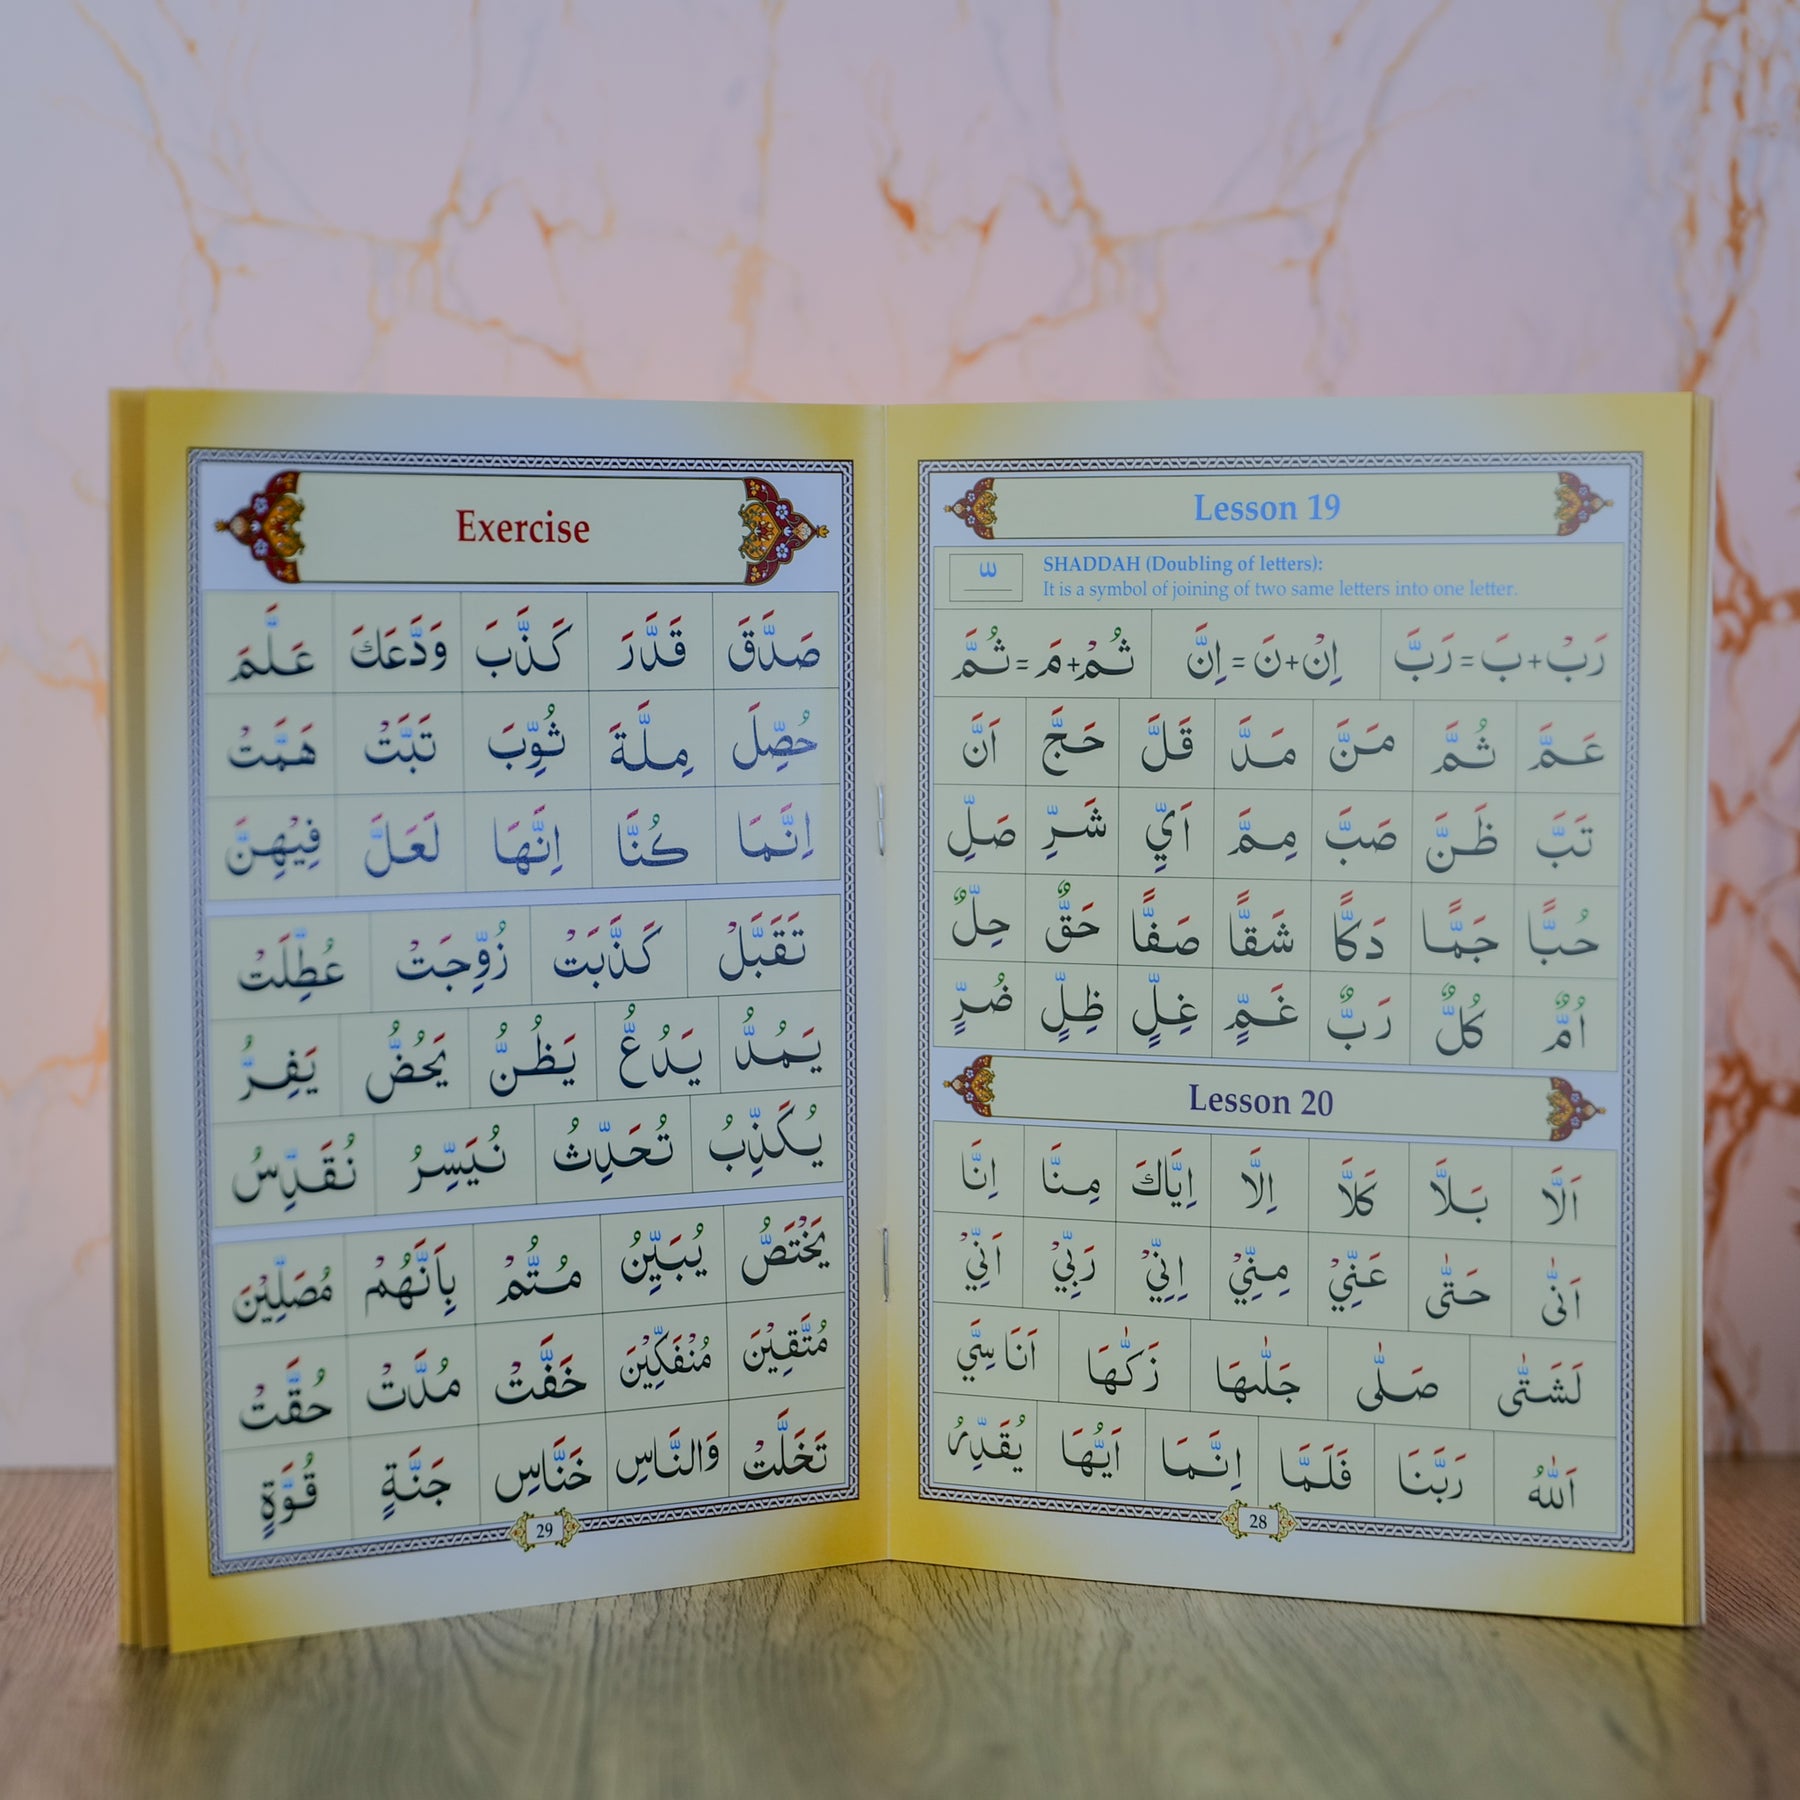 Lesson 19
ّ
SHADDAH (Doubling of letters):
It is a symbol of joining of two same letters into one letter.
رَبْ+بَ=رَبَّ اِنْ+نَ=اِنَّ ثُمْ+مَ=ثُمَّ
عَمَّ ثُمَّ مَنَّ مَدَّ قَلَّ حَجَّ اَنَّ
تَبَّ ظَنَّ صَبَّ مِمَّ اَيِّ شَرِّ صَلِّ
حُبًّا جَمًّا دَكًّا شَقًّا صَفًّا حَقٌّ حِلٌّ
اُمٌّ كُلٌّ رَبٌّ غَمٍّ غِلٍّ ظِلٍّ ضُرٍّ
Lesson 20
اَلَّا بَلَّا كَلَّا اِلَّا اِيَّاكَ مِنَّا اِنَّا
اَنّٰى حَتّٰى عَنِّيْ مِنِّيْ اِنِّيْ رَبِّيْ اَنِّيْ
لَشَتّٰى صَلّٰى جَلّٰىهَا زَكّٰىهَا اَنَاسِيَّ
اَللّٰهُ رَبَّنَا فَلَمَّا اِنَّمَا اَيُّهَا يُقَدِّرُ
28
Exercise
صَدَّقَ قَدَّرَ كَذَّبَ وَدَّعَكَ عَلَّمَ
حُصِّلَ مِلَّةَ ثُوِّبَ تَبَّتْ هَمَّتْ
اِنَّمَا كُنَّا اِنَّهَا لَعَلَّ فِيْهِنَّ
تَقَبَّلْ كَذَّبَتْ زُوِّجَتْ عُطِّلَتْ
يَمُدُّ يَدُعُّ يَظُنُّ يَحُضُّ يَفِرُّ
يُكَذِّبُ تُحَدِّثُ نُيَسِّرُ نُقَدِّسُ
يَخْتَصُّ يُبَيِّنُ مُتُّمْ بِاَنَّهُمْ مُصَلِّيْنَ
مُتَّقِيْنَ مُنْفَكِّيْنَ خَفَّتْ مُدَّتْ حُقَّتْ
تَخَلَّتْ وَالنَّاسِ خَنَّاسِ جَنَّةٍ قُوَّةٍ
29